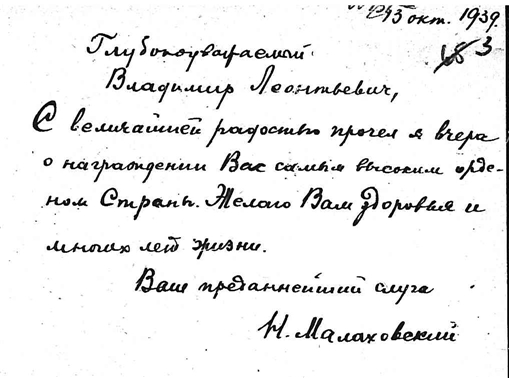 15 окт. 1939.
3
Глубокоуважаемый
Владимир Леонтьевич,
С величайшей радостью прочел я вчера
о награждении Вас самым высоким орде-
ном Страны. Желаю Вам здоровья и
многих лет жизни.
Ваш преданнейший слуга
Н. Малаховский